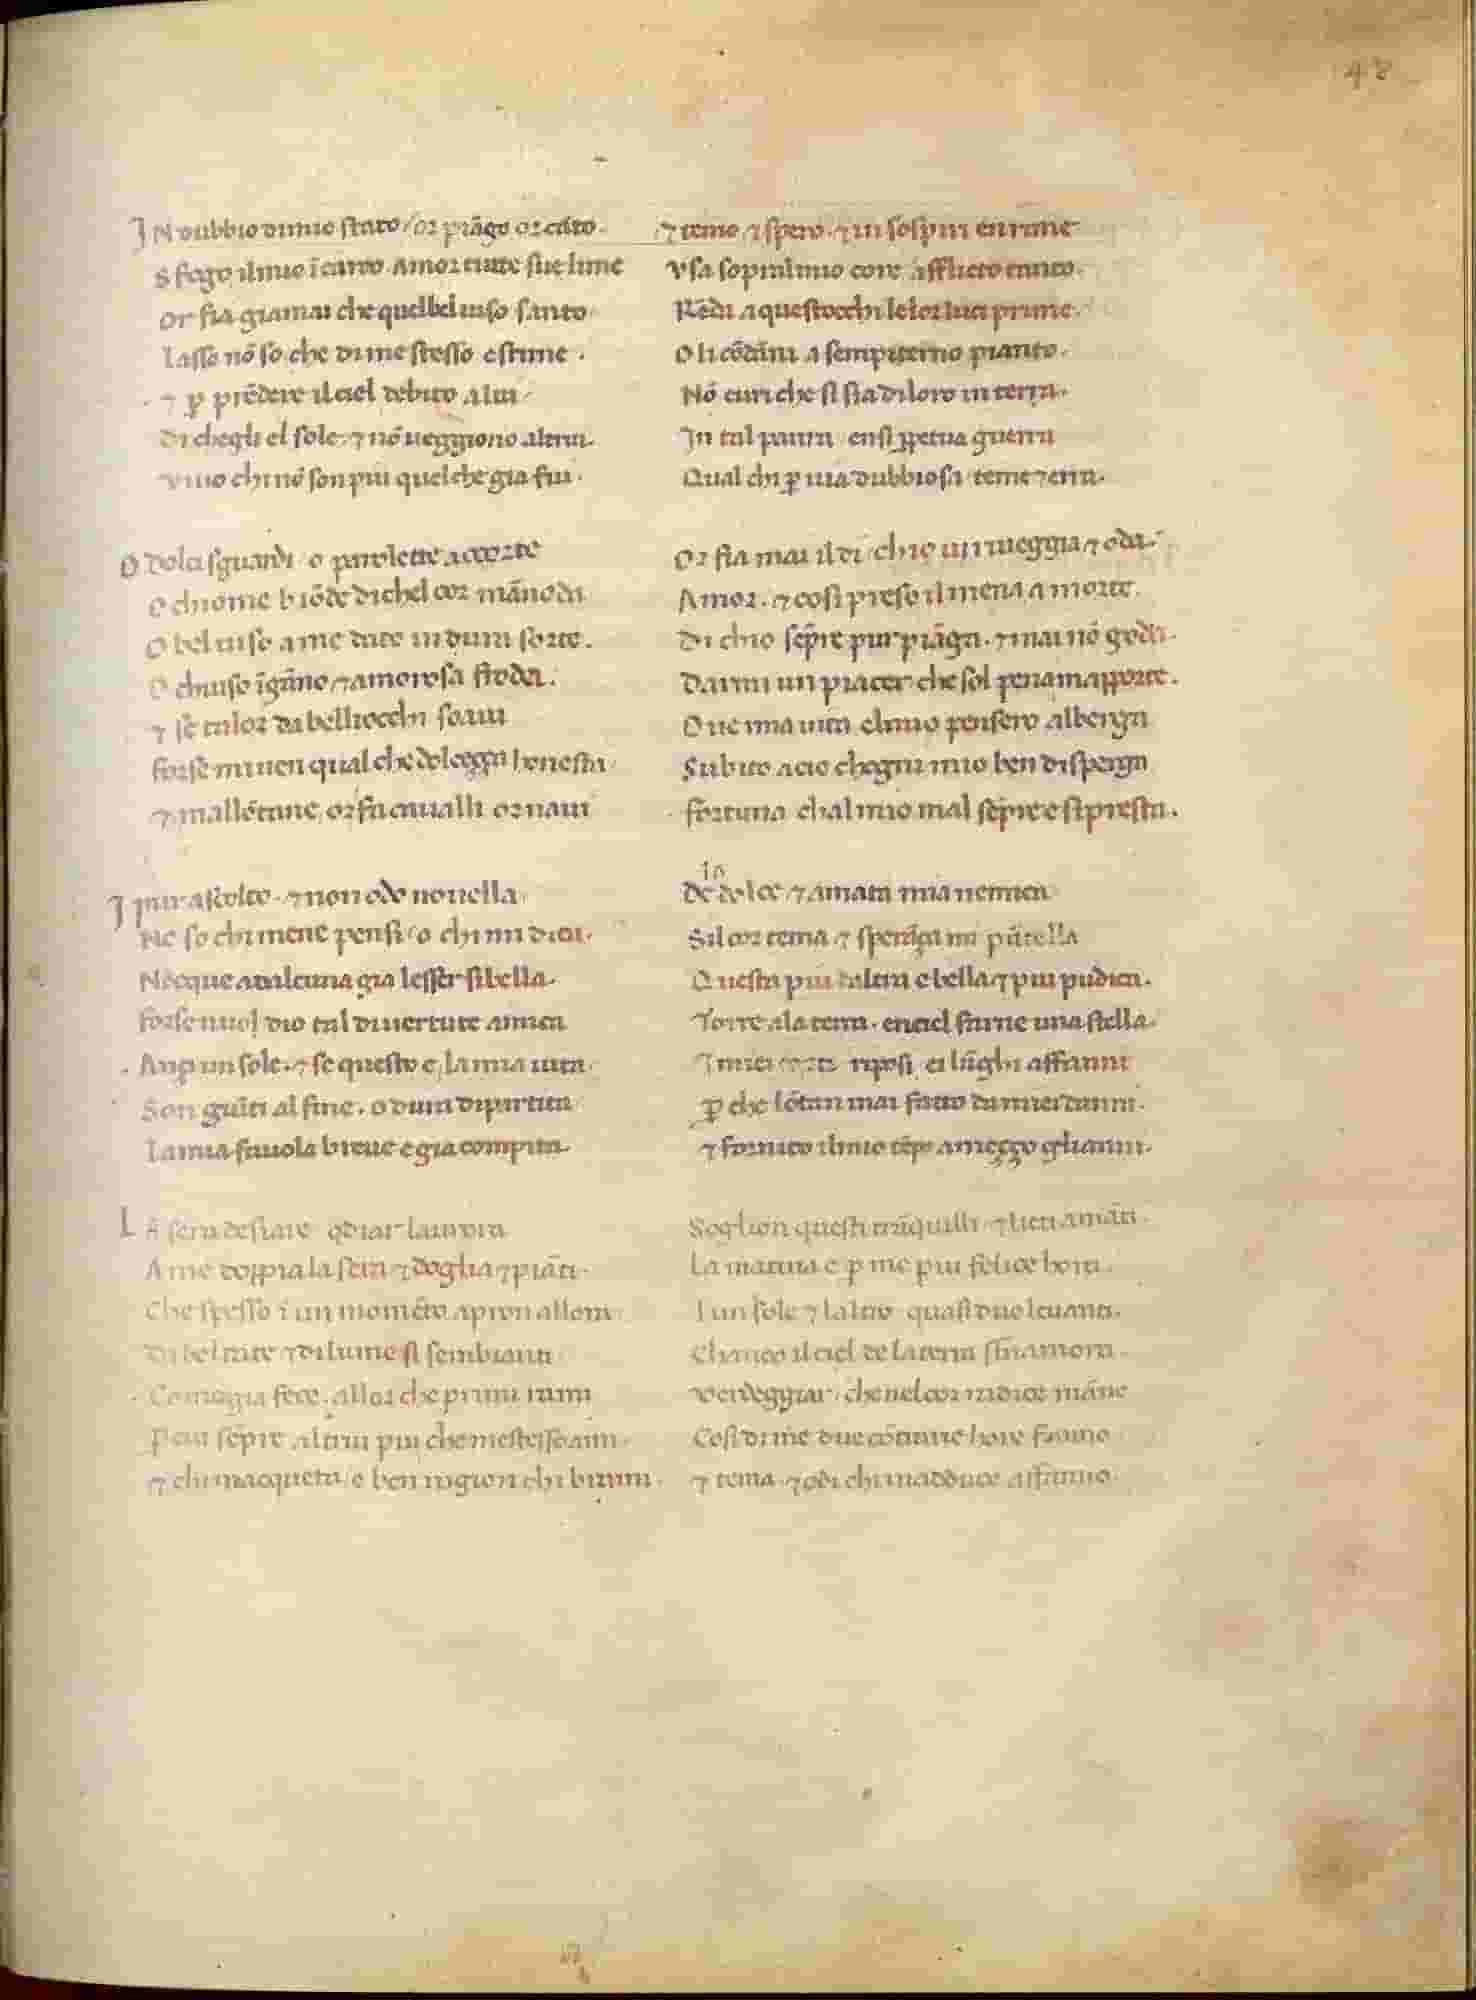 48
IN dubbio di mio stato. or piãgo or cãto. ⁊ temo ⁊ spero. ⁊ in sospiri en rime
Sfogo il mio ĩcarco. Amor tucte sue lime Vsa sopral mio core afflicto tanto.
Or fia giamai che quel bel uiso santo Rẽda a questocchi le lor luci prime.
Lasso nõ so che di me stesso estime. O li cõdãni a sempiterno pianto.
⁊ ꝑ prẽdere il ciel debito a lui Nõ curi che si sia di loro in terra.
Di chegli el sole. ⁊ nõ ueggiono altrui. In tal paura ensi ꝑpetua guerra
Viuo chi nõ son piu quel che gia fui. Qual chi ꝑ uia dubbiosa teme ⁊ erra.
O dolci sguardi o parolette accorte Or fia mai il di chio ui riueggia ⁊ oda.
O chiome biõde di chel cor mãnoda Amor. ⁊ cosi preso il mena a morte.
O bel uiso a me dato in dura sorte. Di chio sẽpre pur piãga. ⁊ mai nõ goda.
O chiuso ĩgãno ⁊ amorosa froda. Darmi un piacer che sol pena mapporte.
⁊ se talor da belli occhi soaui Oue mia uita elmio pensero alberga
Forse mi uen qual che dolceçça honesta Subito acio chogni mio ben disperga
⁊ mallõtane or fa caualli or naui Fortuna chal mio mal sẽpre e si presta.
I pur ascolto. ⁊ non odo nouella De la dolce ⁊ amata mia nemica
Ne so chi mene pensi o chi mi dica. Sil cor tema ⁊ sperãça mi pũtella
Nocque ad alcuna gia lesser si bella. Questa piu daltra e bella ⁊ piu pudica.
Forse uuol dio tal di uertute amica Torre ala terra. en ciel farne una stella.
Anꝑ un sole. ⁊ se questo e la mia uita. I miei corti riposi ei lũghi affanni
Son giũti al fine. o dura dipartita ꝑ che lõtan mai facto da miei danni.
La mia fauola breue e gia compita. ⁊ fornito il mio tẽpo a meçço gli anni.
LA sera desiare odiar laurora Soglion questi trãquilli ⁊ lieti amãti.
A me doppia la sera ⁊ doglia ⁊ piãti. La matina e ꝑ me piu felice hora.
Che spesso ĩ un momẽto apron allora Lun sole ⁊ laltro quasi duo leuanti.
Di beltate ⁊ di lume si sembianti Chanco il ciel de la terra sĩnamora.
Come gia fece. allor che primi rami Verdeggiar. che nel cor radice mãno
ꝑ cui sẽpre altrui piu che me stesso ami. Cosi di me due cõtrarie hore fãno
⁊ chi macqueta. e ben ragion chi brami. ⁊ tema. ⁊ odi chi madduce affanno